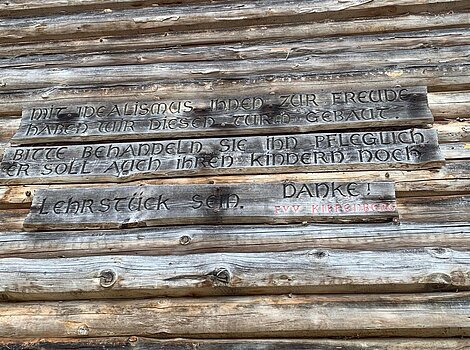 MIT IDEALISMUS IHNEN ZUR FREUDE
HABEN WIR DIESEN TURM GEBAUT.
BITTE BEHANDELN SIE IHN PFLEGLICH
ER SOLL AUCH IHREN KINDERN NOCH
LEHRSTÜCK SEIN. DANKE!
FVV KIPPENBERG